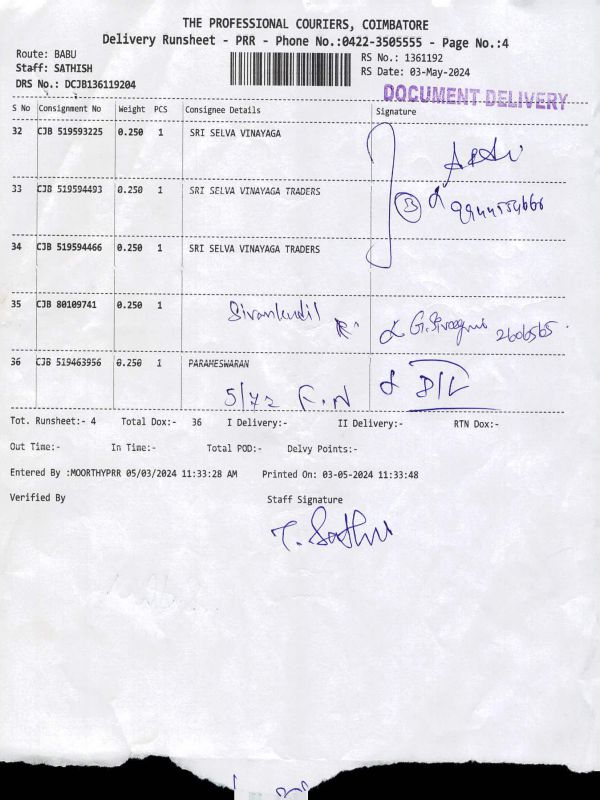 THE PROFESSIONAL COURIERS, COIMBATORE
Delivery Runsheet - PRR - Phone No.:0422-3505555 - Page No.:4
Route: BABU
Staff: SATHISH
DRS No.: DCJB136119204
RS No.: 1361192
RS Date: 03-May-2024
DOCUMENT DELIVERY
S No Consignment No Weight PCS Consignee Details Signature
32 CJB 519593225 0.250 1 SRI SELVA VINAYAGA
33 CJB 519594493 0.250 1 SRI SELVA VINAYAGA TRADERS
34 CJB 519594466 0.250 1 SRI SELVA VINAYAGA TRADERS
35 CJB 80109741 0.250 1
2606565
36 CJB 519463956 0.250 1 PARAMESWARAN
5/72 F.N D/L
Tot. Runsheet:- 4 Total Dox:- 36 I Delivery:- II Delivery:- RTN Dox:-
Out Time:- In Time:- Total POD:- Delvy Points:-
Entered By :MOORTHYPRR 05/03/2024 11:33:28 AM Printed On: 03-05-2024 11:33:48
Verified By Staff Signature